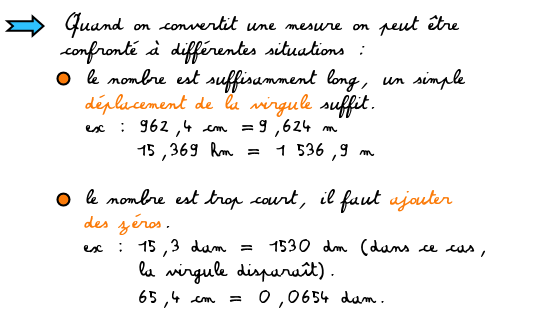 Quand on convertit une mesure on peut être
confronté à différentes situations :
le nombre est suffisamment long, un simple
déplacement de la virgule suffit.
ex : 962,4 cm = 9,624 m
15,369 km = 1 536,9 m
le nombre est trop court, il faut ajouter
des zéros.
ex : 15,3 dam = 1530 dm (dans ce cas,
la virgule disparaît).
65,4 cm = 0,0654 dam.